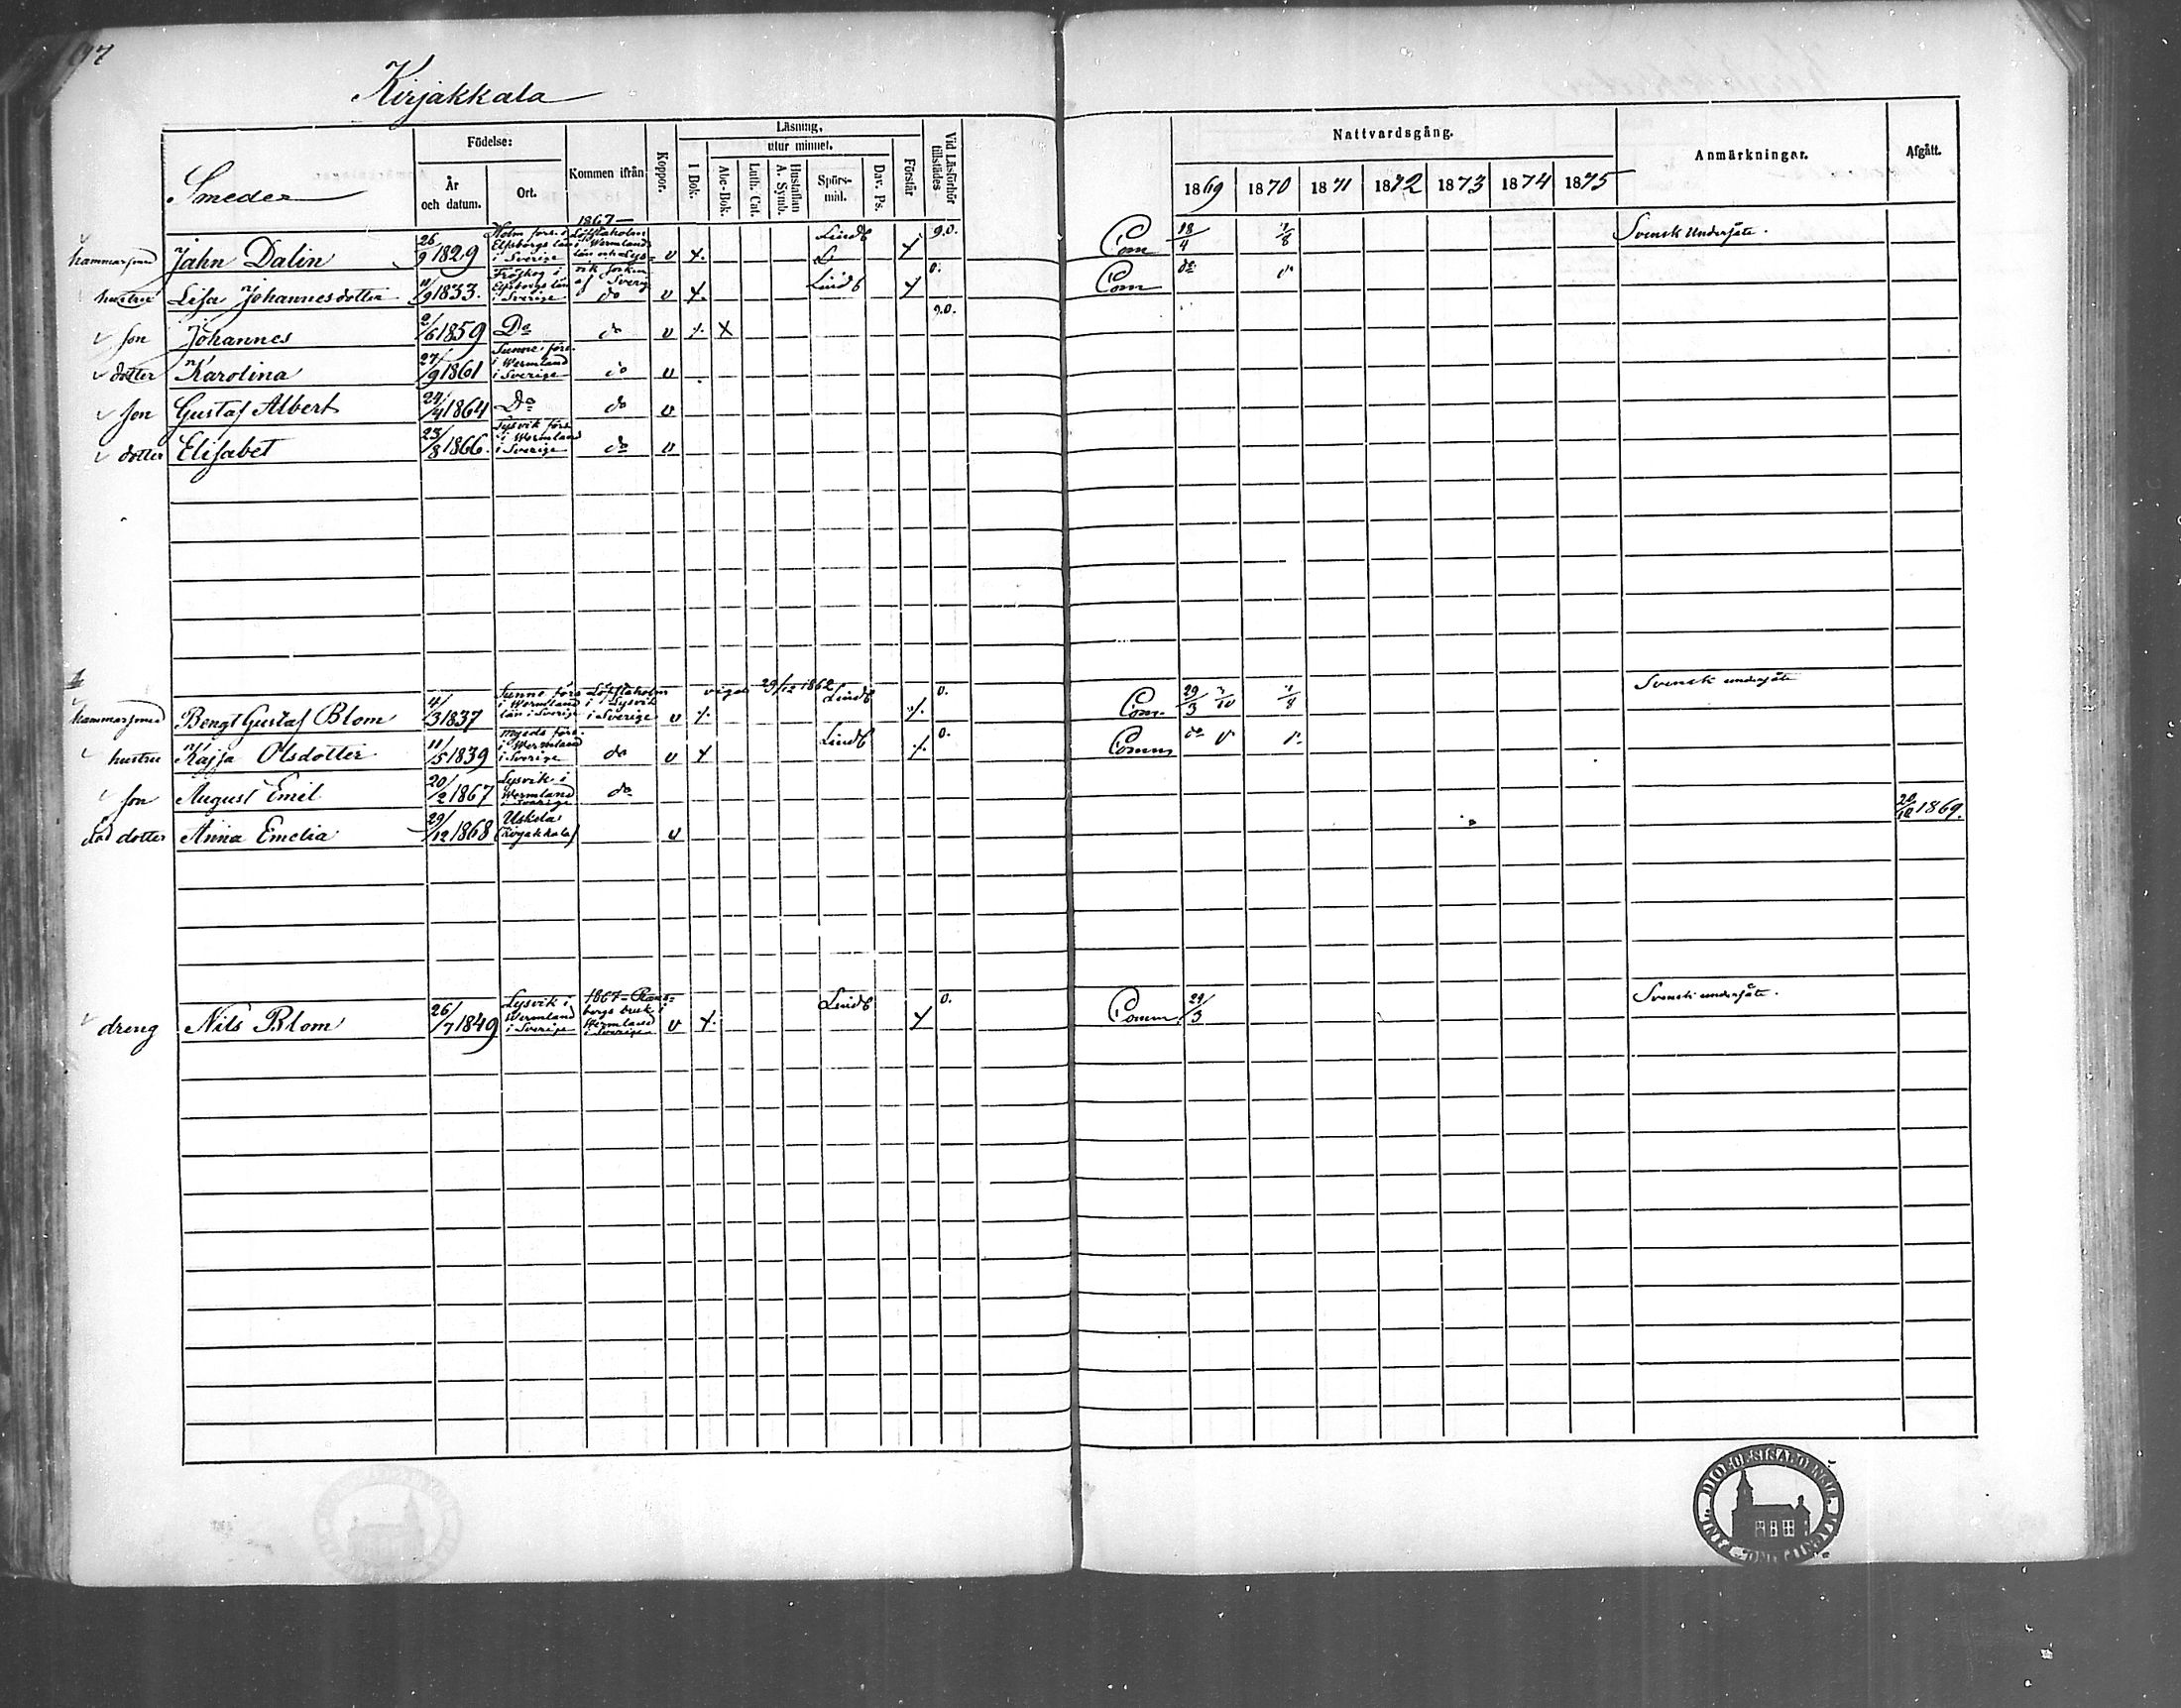 Kirjakkala
Smeder
Födelse:
År och datum.
Ort.
Kommen ifrån
Koppor.
Läsning,
utur minnet.
I Bok.
Abc-Bok.
Luth. Cat.
Hustaflan A. Symb.
Spörs-mål.
Dav. Ps.
Förstår
Vid Läsförhör tillstädes
Nattvardsgång.
1869 1870 1871 1872 1873 1874 1875
Anmärkningar.
Afgått.
hammarsmed Jahn Dalin 26/9 1829 Holm förs. i Elfsborgs län i Sverige 1867 Löfstaholm i Wermlands län och Lysvik forken af Sverig v Lindb Com 18/4 Svensk Undersåte.
hustru Lisa Johannesdotter 11/9 1833. Fröskog i Elfsborgs län i Sverige do v Lindb Com do
son Johannes 2/6 1859 Do do v
dotter Karolina 27/9 1861 Sunne förs. i Wermland i Sverige do v
son Gustaf Albert 24/4 1864 Do do v
dotter Elisabet 23/8 1866. Lysvik förs i Wermland i Sverige do v
vigde 29/12 1862
hammarsmed Bengt Gustaf Blom 4/3 1837 Sunne förs i Wermland län i Sverige Löfstaholm i Lysvik i Sverige v Lindb Com. 29/3 Svensk undersåte
hustru Kajsa Olsdotter 11/5 1839 förs. i Wermland i Sverige do v Lindb Comm do
son August Emil 20/2 1867 Lysvik i Wermland i Sverige do
död dotter Anna Emelia 29/12 1868 Uskela (Kirjakkala) v 1869.
dreng Nils Blom 26/7 1849 Lysvik i Wermland i Sverige 1867 bruk i Wermland i Sverige v Lindb Comm 29/3 Svensk undersåte.